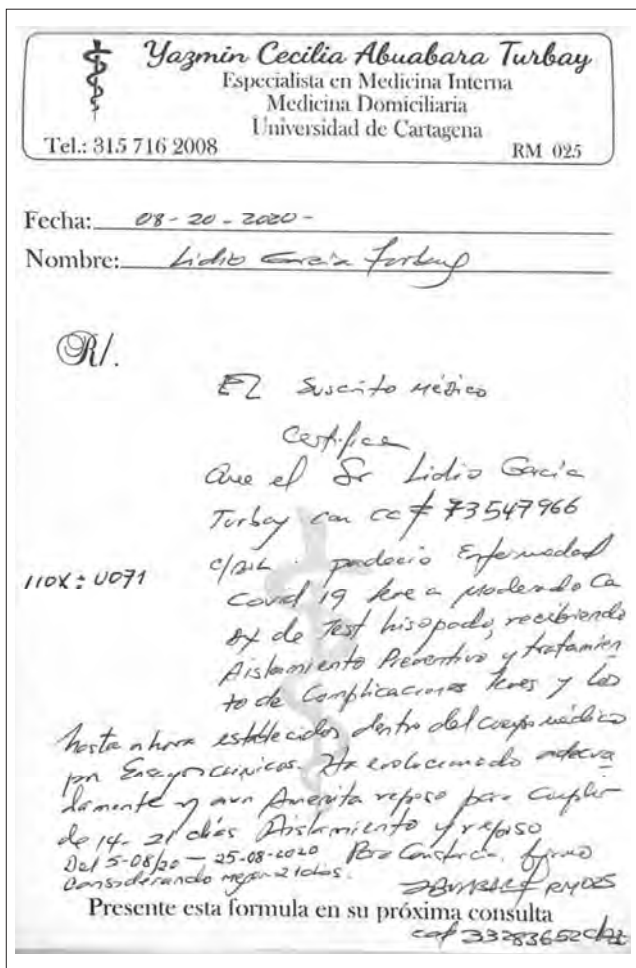 Yazmin Cecilia Abuabara Turbay
Especialista en Medicina Interna
Medicina Domiciliaria
Universidad de Cartagena
Tel.: 315 716 2008 RM 025
Fecha: 08-20-2020-
Nombre: Lidio Garcia Turbay
R/.
El Suscrito Médico
Certifica
Que el Sr Lidio Garcia
Turbay con cc # 73547966
padecio Enfermedad
Covid 19 leve a moderado
de Test hisopado, recibiendo
Aislamiento Preventivo y tratamien
to de Complicaciones leves y los
hasta ahora establecidos dentro del cuerpo médico
por Ensayos clinicos. Ha evolucionado adecua
damente y aun Amerita reposo para cumplir
de 14-21 dias Aislamiento y reposo
Del 5-08/20 — 25-08-2020 Para Constancia firmo
Considerando
Presente esta formula en su próxima consulta
33283652